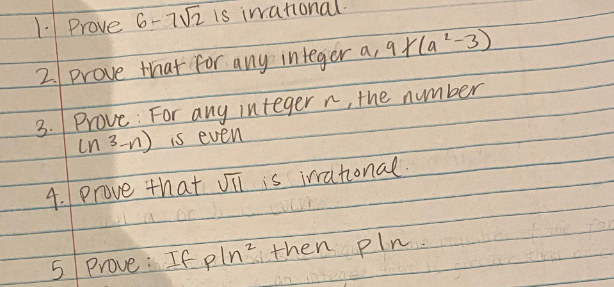 1. Prove 6-7√2 is irrational.
2. Prove that for any integer a, 9∤(a²-3)
3. Prove: For any integer n, the number
(n3-n) is even
4. Prove that √11 is irrational.
5 Prove: If p|n² then p|n.